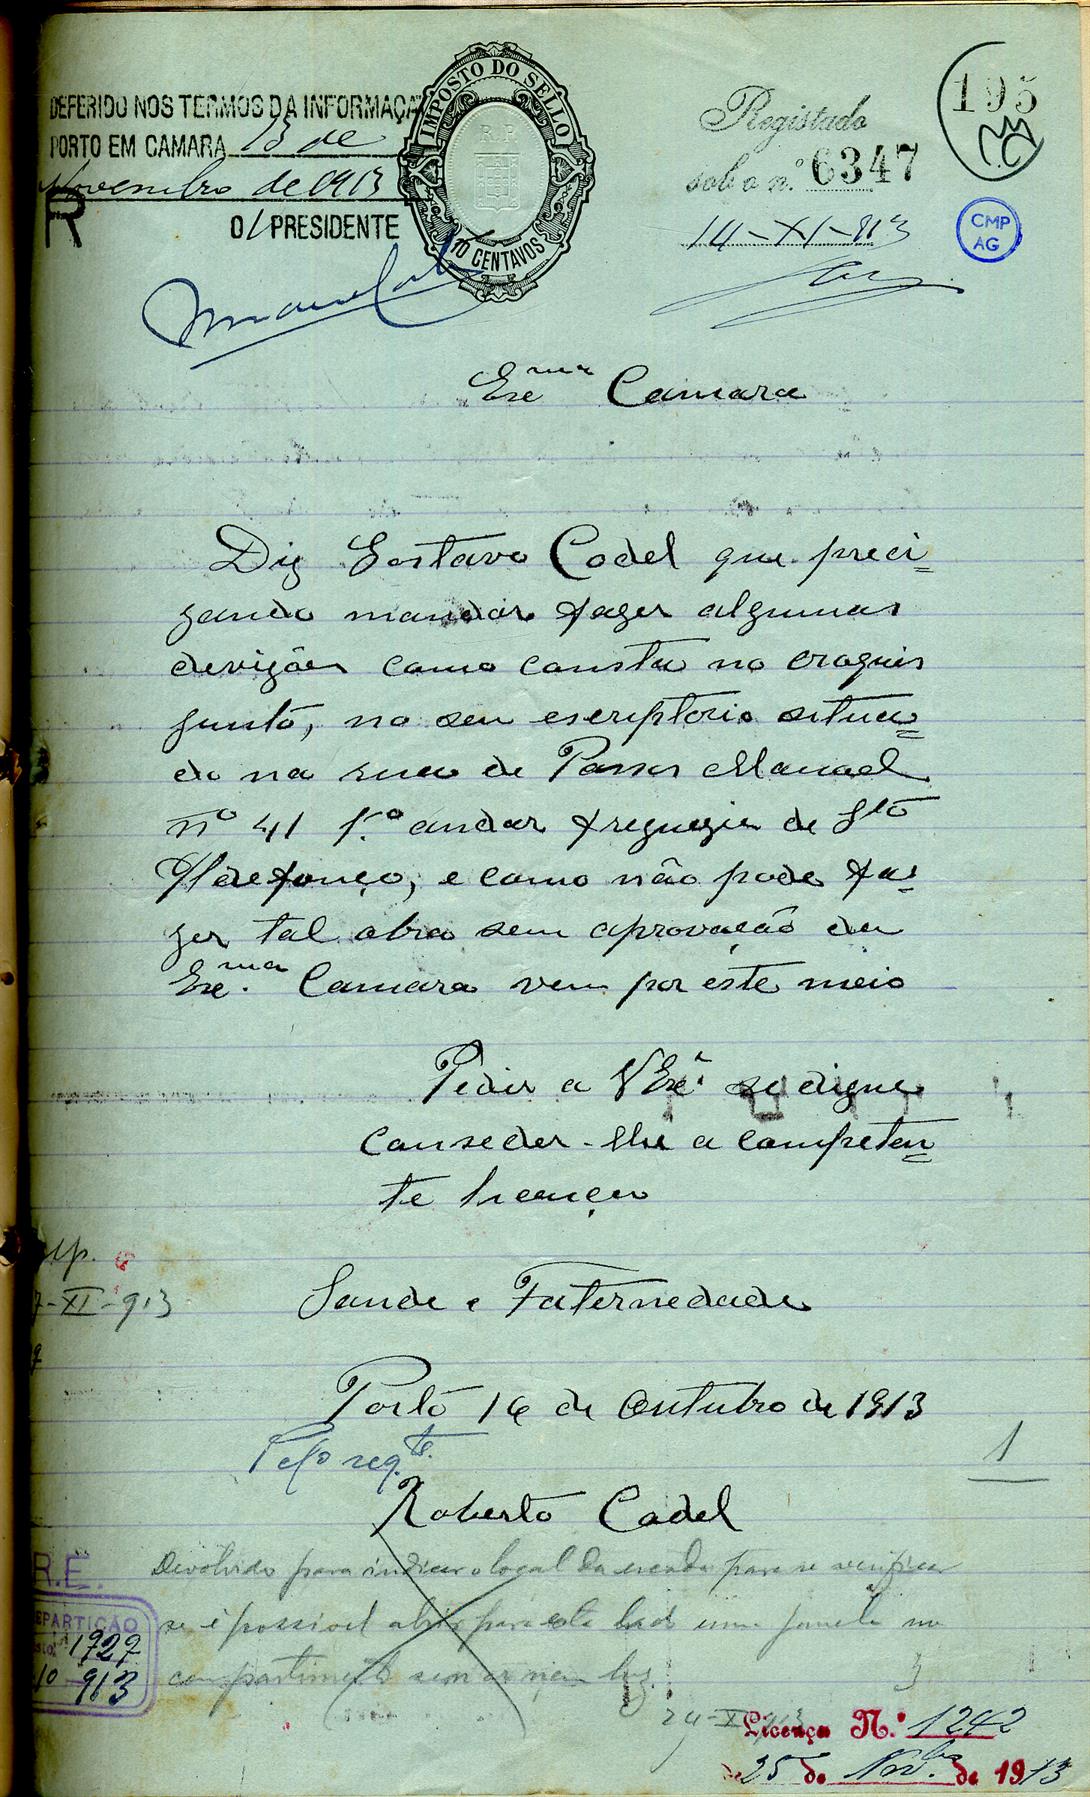 DEFERIDO NOS TERMOS DA INFORMAÇÃ
PORTO EM CAMARA 13 de
Novembro de 1913
R
O/ PRESIDENTE
IMPOSTO DO SELLO
R P
10 CENTAVOS
Registado
sob o n.º 6347
14-XI-913
195
CMP
AG
Exe^ma Camara
Diz Gostavo Codel que preci=
zando mandar fazer algumas
devizões como consta no croquis
junto, no seu escriptorio situa=
do na rua de Passos Manoel
nº 41 1.º andar freguezia de Stº
Ildefonço, e como não pode fa=
zer tal obra sem aprovação da
Exe.^ma Camara vem por este meio
Pedir a VExê.ª se digne
conseder-lhe a competen=
te licença
up.
7-XI-913
Saude e Faternedade
Porto 16 de Outubro de 1913
Pelo req.te
1
Roberto Codel
Devolvido para indicar o local da escada para se verificar
se é possivel abrir para este lado uma janela no
compartimento sem ar nem luz.
R.E.
EPARTIÇÃO
1727
10 913
24-X-913
Licença N.º 1242
de 25 de Nov.bro de 1913